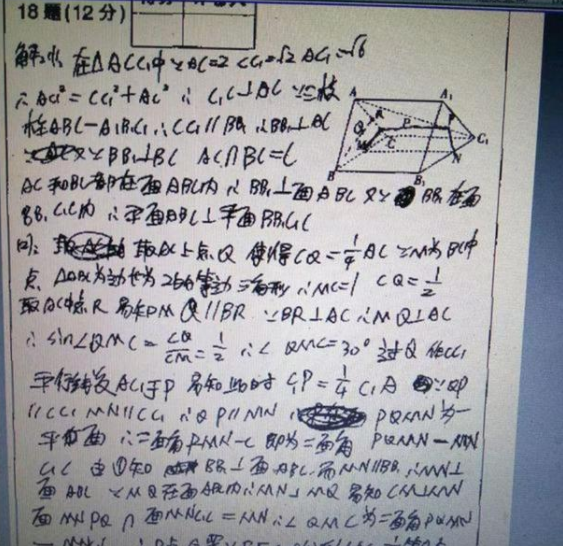 18题(12分)
解:(1) 在△ACC₁中 ∵AC=2 CC₁=√2 AC₁=√6
∴AC₁²=CC₁²+AC² ∴C₁C⊥AC ∵三棱
柱ABC-A₁B₁C₁ ∴CC₁//BB₁ ∴BB₁⊥AC
又∵BB₁⊥BC AC∩BC=C
AC和BC都在面ABC内 ∴BB₁⊥面ABC 又∵BB₁在面
BB₁C₁C内 ∴平面ABC⊥平面BB₁C₁C
取AC上点Q 使得CQ=1/4AC ∵M为BC中
点 △ABC为边长为2的等边三角形 ∴MC=1 CQ=1/2
取AC中点R 易知MQ//BR ∵BR⊥AC ∴MQ⊥AC
∴sin∠QMC=CQ/CM=1/2 ∴∠QMC=30° 过Q作CC₁
平行线交AC₁于P 易知此时C₁P=1/4C₁A ∵QP
//CC₁ MN//CC₁ ∴QP//MN PQMN为一
平面 ∴二面角PMN-C即为二面角PQMN-MN
C₁C 由①知BB₁⊥面ABC 而MN//BB₁ ∴MN⊥
面ABC ∵MQ在面ABC内 ∴MN⊥MQ 易知CM⊥MN
面MNPQ∩面MNCC₁=MN ∴∠QMC为二面角PQMN
A
A₁
R
Q
P
C
C₁
M
N
B
B₁